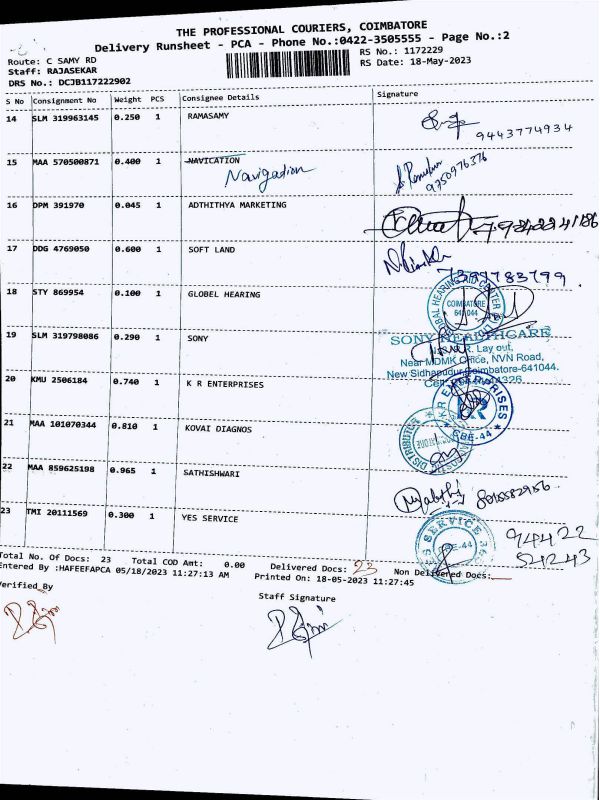 THE PROFESSIONAL COURIERS, COIMBATORE
Delivery Runsheet - PCA - Phone No.:0422-3505555 - Page No.:2
Route: C SAMY RD RS No.: 1172229
Staff: RAJASEKAR RS Date: 18-May-2023
DRS No.: DCJB117222902
S No Consignment No Weight PCS Consignee Details Signature
14 SLM 319963145 0.250 1 RAMASAMY
9443774934
15 MAA 570500871 0.400 1 NAVICATION
Navigation
9750976376
16 DPM 391970 0.045 1 ADTHITHYA MARKETING
17 DDG 4769050 0.600 1 SOFT LAND
18 STY 869954 0.100 1 GLOBEL HEARING
COIMBATORE
641044
19 SLM 319798086 0.290 1 SONY
SONY HEALTHCARE
R. Lay out,
Near MDMK Office, NVN Road,
New Sidhapudur, Coimbatore-641044.
20 KMU 2506184 0.740 1 K R ENTERPRISES
K R ENTERPRISES
CBE-44
21 MAA 101070344 0.810 1 KOVAI DIAGNOS
22 MAA 859625198 0.965 1 SATHISHWARI
23 TMI 20111569 0.300 1 YES SERVICE
94422
54243
Total No. Of Docs: 23 Total COD Amt: 0.00 Delivered Docs: 23 Non Delivered Docs:
Entered By :HAFEEFAPCA 05/18/2023 11:27:13 AM Printed On: 18-05-2023 11:27:45
Verified By Staff Signature